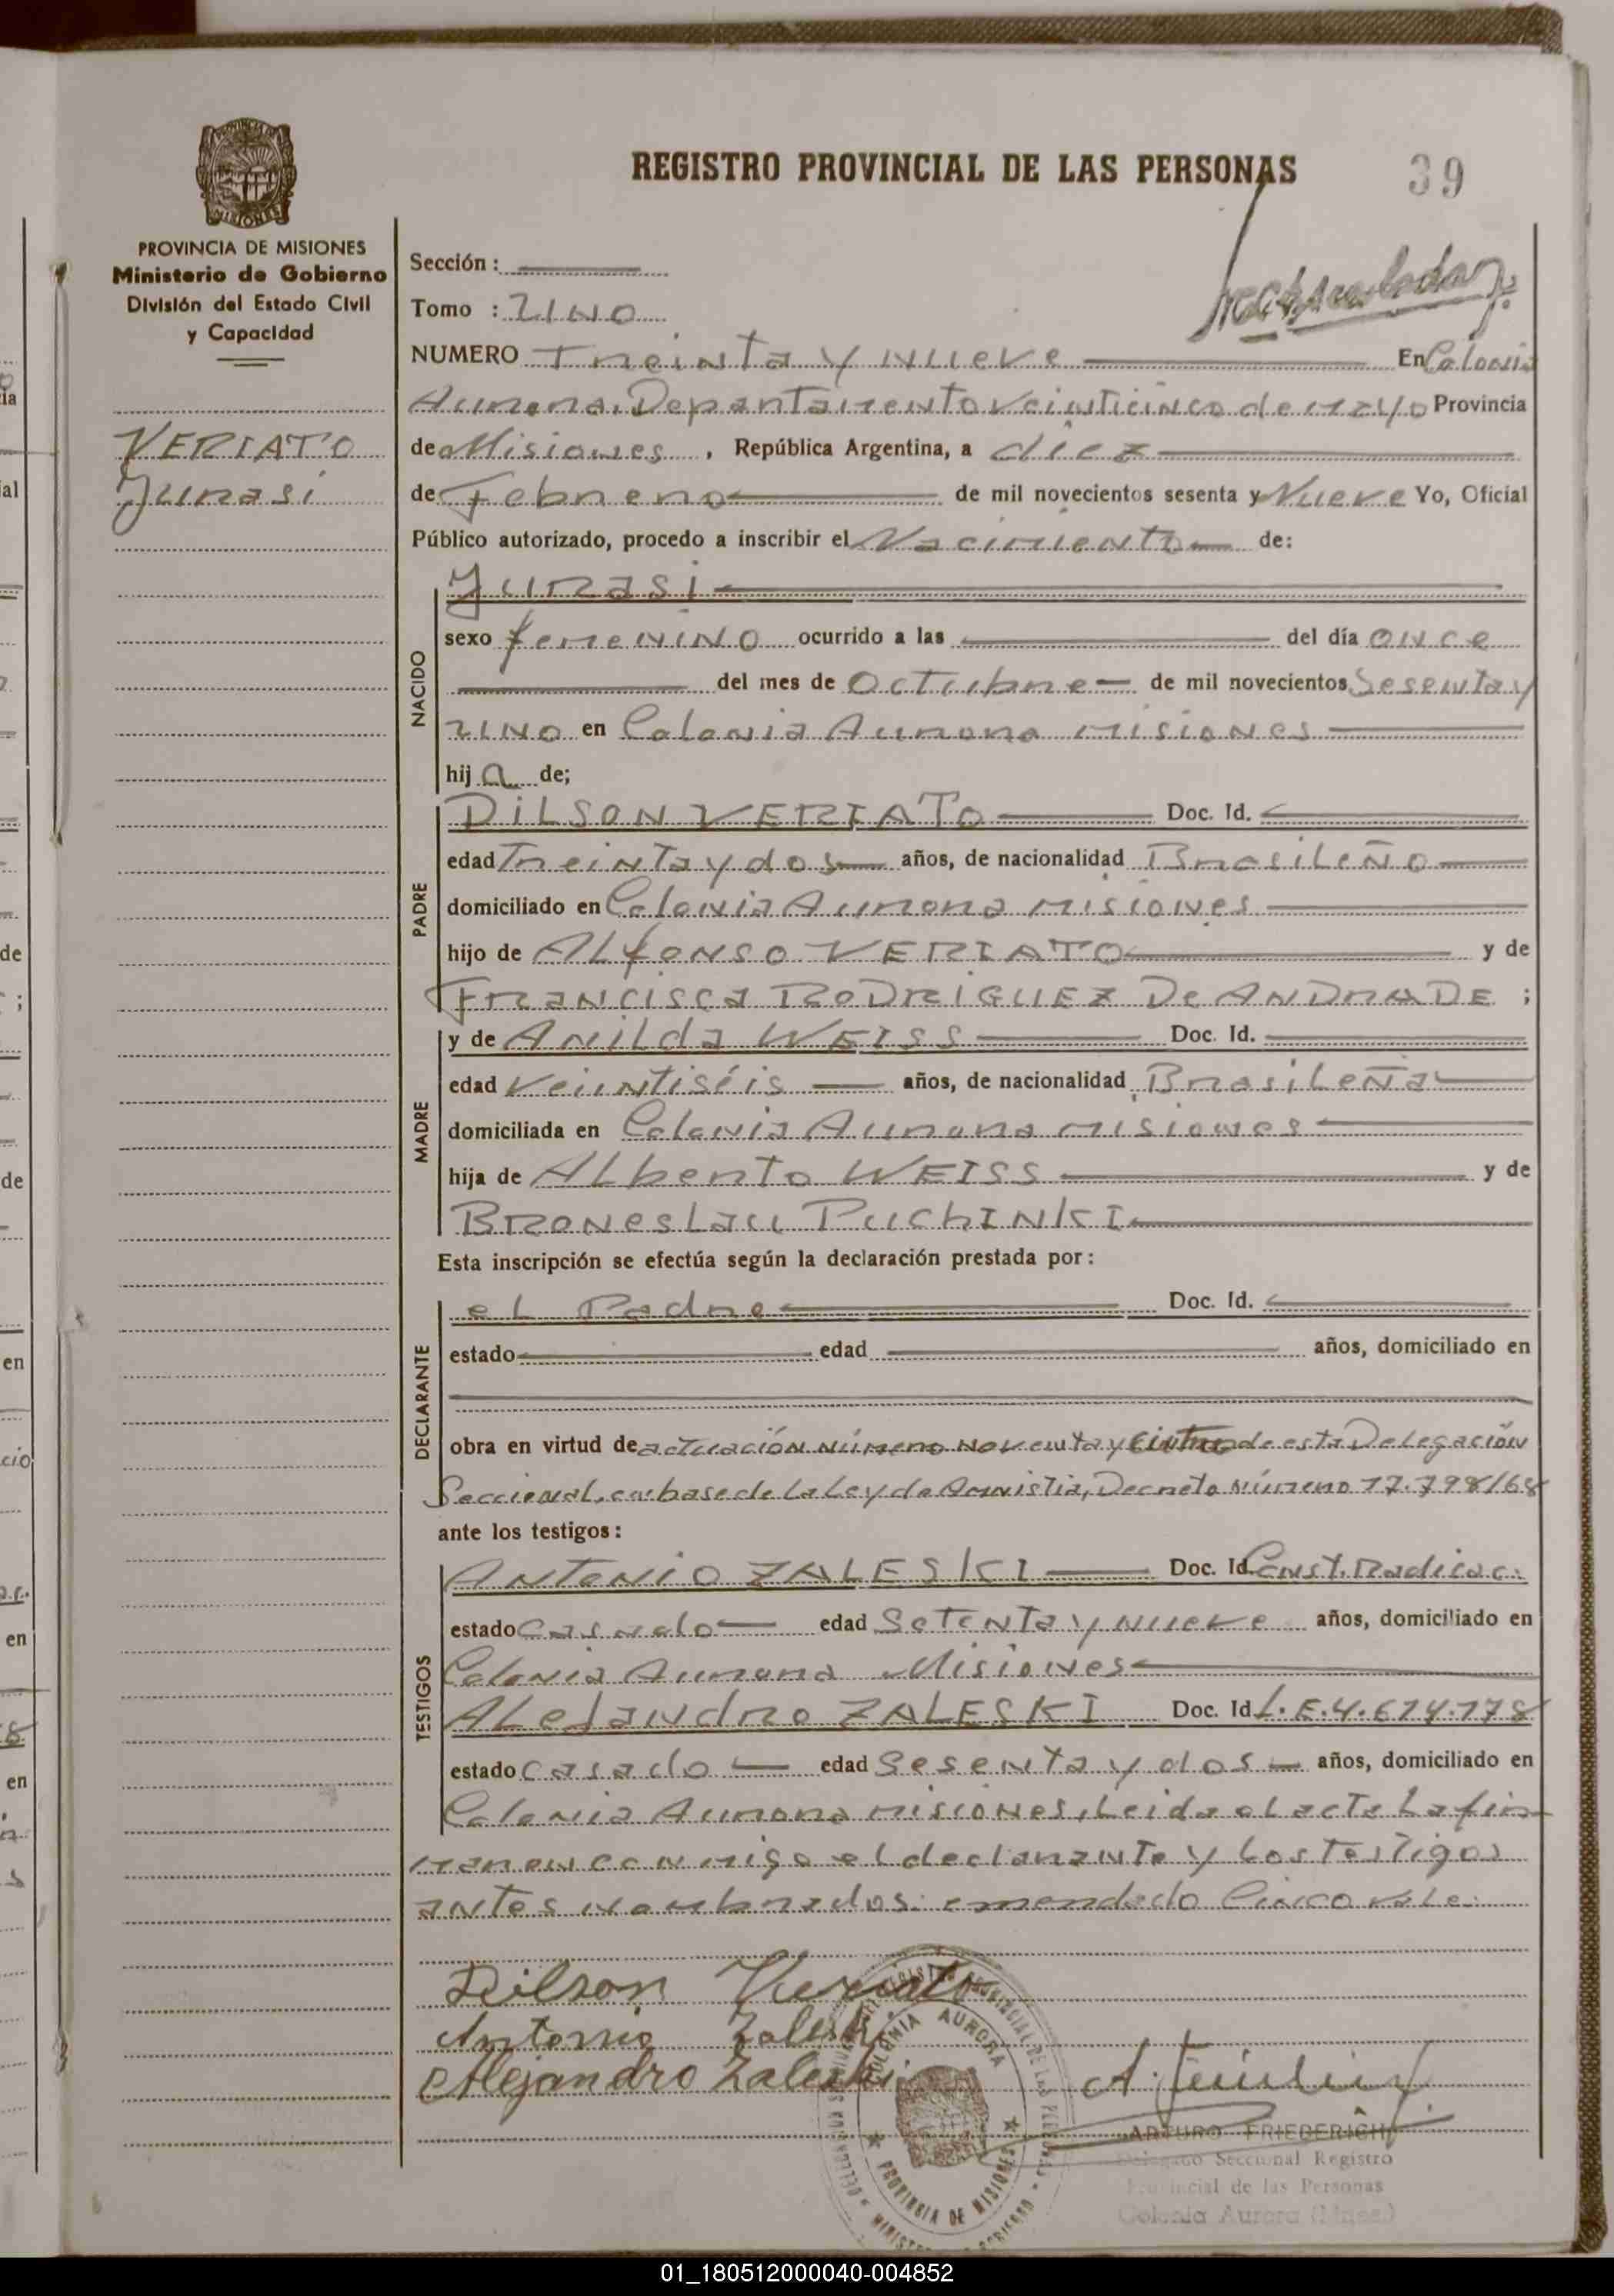 REGISTRO PROVINCIAL DE LAS PERSONAS
39
PROVINCIA DE MISIONES
Ministerio de Gobierno
División del Estado Civil
y Capacidad
VERIATO
Jurasi
Sección :
Tomo : UNO
NUMERO Treinta y nueve En Colonia
Aurora, Departamento veinticinco de mayo Provincia
de Misiones , República Argentina, a diez
de Febrero de mil novecientos sesenta y Nueve Yo, Oficial
Público autorizado, procedo a inscribir el Nacimiento de:
NACIDO
Jurasi
sexo femenino ocurrido a las del día once
del mes de Octubre de mil novecientos Sesenta y
uno en Colonia Aurora misiones
hij a de;
PADRE
DiLSON VERIATO Doc. Id.
edad Treinta y dos años, de nacionalidad BrasiLeÑo
domiciliado en Colonia Aurora misiones
hijo de ALfONSO VERIATO y de
Francisca RODRIGUEZ De ANDRADE ;
MADRE
y de AniLda WEISS Doc. Id.
edad veintiséis años, de nacionalidad BrasiLeÑa
domiciliada en Colonia Aurora misiones
hija de ALberto WEISS y de
BroNesLau PuchINKI
Esta inscripción se efectúa según la declaración prestada por :
DECLARANTE
eL Padre Doc. Id.
estado edad años, domiciliado en
obra en virtud de actuación número noventa y de esta Delegación
Seccional, en base de La Ley de Amnistia, Decreto número 17.798/68
ante los testigos :
TESTIGOS
ANTONIO ZALESKI Doc. Id. Const. Radicac.
estado Casado edad Setenta y nueve años, domiciliado en
Colonia Aurora Misiones
ALeJandro ZALESKI Doc. Id L.E.4.614.178
estado casado edad Sesenta y dos años, domiciliado en
Colonia Aurora misiones, Leida el acta La fir
maron conmigo el declarante y Los Testigos
antes nombrados: emendado Cinco vale:
Dilson Veriato
Antonio Zaleski
Alejandro Zaleski
COLONIA AURORA
PROVINCIA DE MISIONES
ARTURO FRIEDERICH
Delegado Seccional Registro
Provincial de las Personas
Colonia Aurora (Mnes.)
01_180512000040-004852